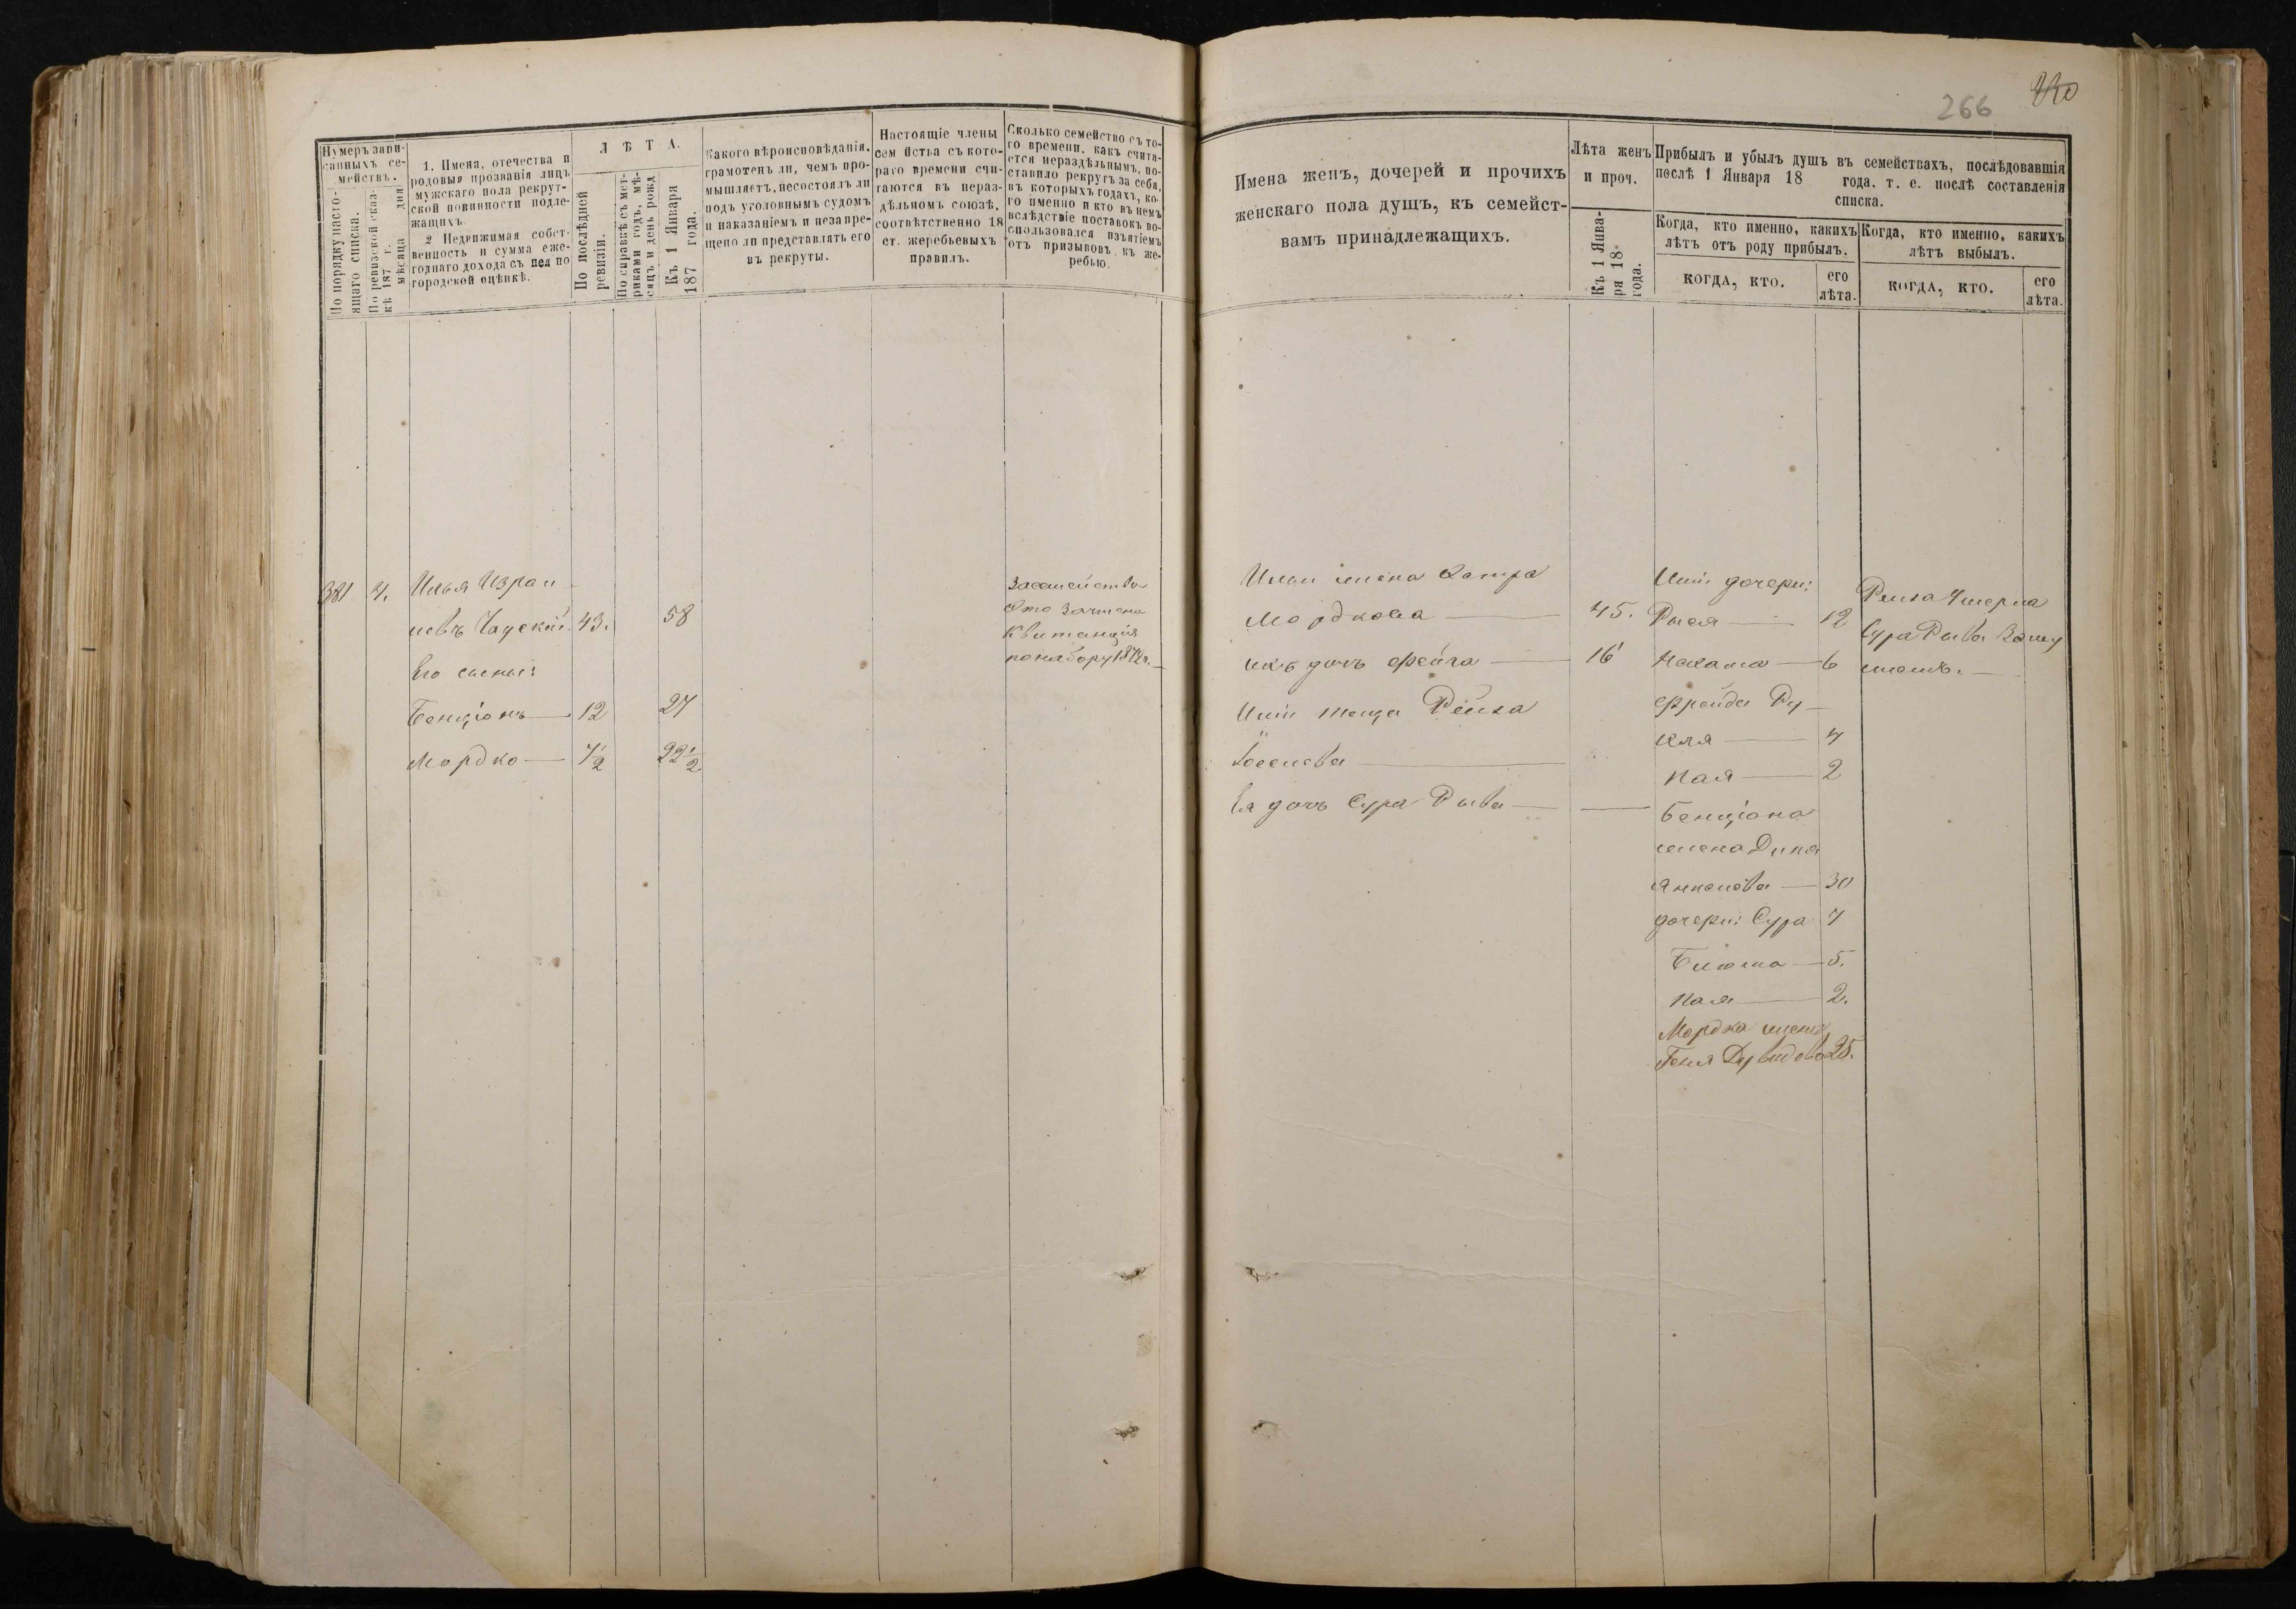 266
Нумеръ запи-
санныхъ се-
мействъ.
По порядку насто-
ящаго списка.
По ревизской сказ-
кѣ 187 г.
мѣсяца дня
1. Имена, отечества и
родовыя прозванія лицъ
мужскаго пола рекрут-
ской повинности подле-
жащихъ
2 Недвижимая собст-
венность и сумма еже-
годнаго дохода съ нея по
городской оцѣнкѣ.
ЛѢТА.
По послѣдней
ревизіи.
По справкѣ съ мет-
риками годъ, мѣ-
сяцъ и день рожд
Къ 1 Января
187 года.
Какого вѣроисповѣданія,
грамотенъ ли, чемъ про-
мышляетъ, несостоялъ ли
подъ уголовнымъ судомъ
и наказаніемъ и незапре-
щено ли представлять его
въ рекруты.
Настоящіе члены
семейства съ кото-
раго времени счи-
таются въ нераз-
дѣльномъ союзѣ,
соотвѣтственно 18
ст. жеребьевыхъ
правилъ.
Сколько семейство съ то-
го времени, какъ счита-
ется нераздѣльнымъ, по-
ставило рекрутъ за себя,
въ которыхъ годахъ, ко-
го именно и кто въ немъ
вслѣдствіе поставокъ во-
спользовался изъятіемъ
отъ призывовъ къ же-
ребью.
381 4. Илья Израи
левъ Чауский 43. 58
Его сыны:
Бенціонъ 12 27
Мордко 7 1/2 22 1/2
За семейство
это зачтена
квитанція
по набору 1872 г.
Имена женъ, дочерей и прочихъ
женскаго пола душъ, къ семейст-
вамъ принадлежащихъ.
Лѣта женъ
и проч.
Къ 1 Янва-
ря 18
года.
Прибылъ и убылъ душъ въ семействахъ, послѣдовавшія
послѣ 1 Января 18 года. т. е. послѣ составленія
списка.
Когда, кто именно, какихъ
лѣтъ отъ роду прибылъ.
Когда, кто именно, какихъ
лѣтъ выбылъ.
КОГДА, КТО.
его
лѣта.
КОГДА, КТО.
его
лѣта.
Ильи жена
Мордкова 45.
ихъ дочь Фейга 16
Ильи теща Рейза
Іоселева
Ея дочь Сура Рыва
Ильи дочери:
Рыся 12
Нехама 6
Фрейда Ру
хля 4
Хая 2
Бенціона
жена Дина
Янкелева 30
дочери: Сура 7
Блюма 5.
Хая 2.
Мордка жена
Геня Дувидова 25.
Рейза умерла
Сура Рыва заму
жемъ.